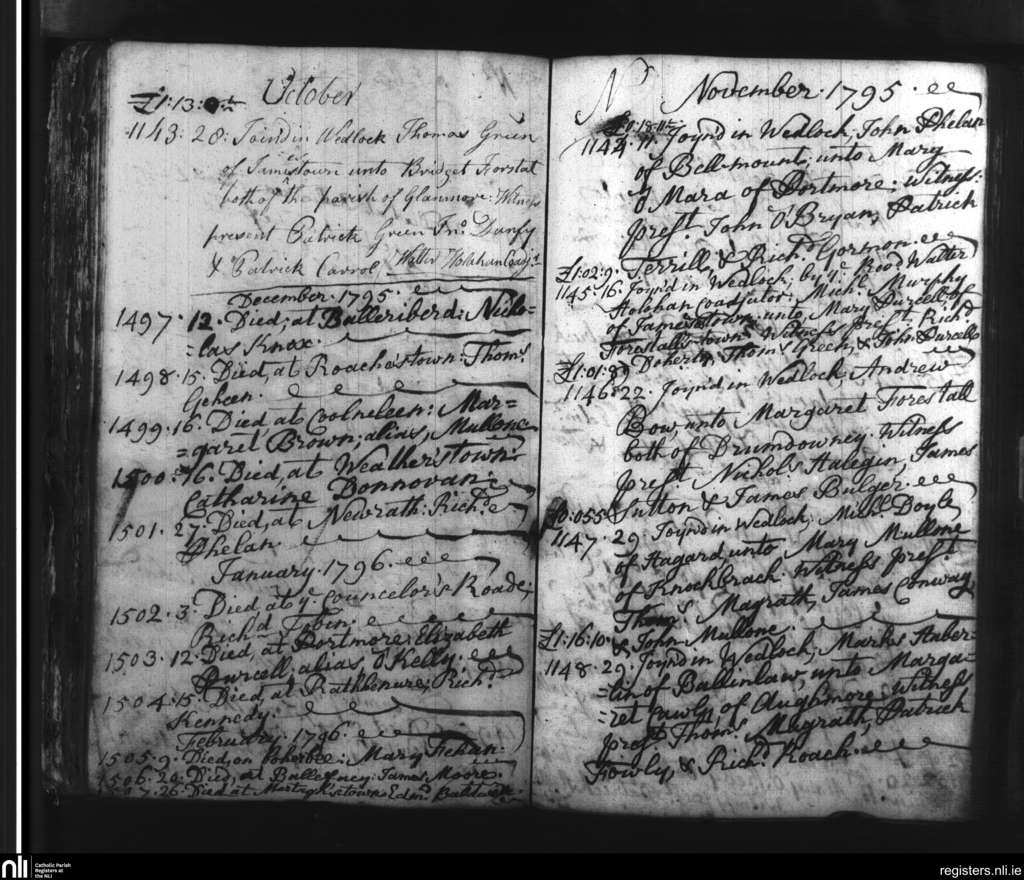 October
£1:13:
1143: 28: Joind in Wedlock Thomas Green
of Jamestown unto Bridget Forstal
both of the parish of Glanmore: Witness
present Patrick Green Jno. Danfy
& Patrick Carrol Walter Holahan Coadjr.
December. 1795.
1497. 12. Died; at Balleriberd: Nicho-
=las Knox.
1498. 15. Died, at Roachestown: Thoms.
Geheen.
1499. 16. Died at Coolneleen: Mar=
=garet Brown; alias, Mullone
1500: 16. Died, at Weatherstown:
Catharine Donnovan:
1501. 27. Died, at Newrath: Richd.
Phelan.
January. 1796.
1502. 3. Died, at ye. Councelor's Roade;
Richd. Tobin.
1503. 12. Died, at Portmore; Elizabeth
Purcell alias, O'Kelly.
1504. 15. Died, at Rathbenure; Richd.
Kennedy.
February. 1796.
1505. 9. Died, on Boherbee: Mary Fichan.
1506. 20. Died, at James Moore.
26. Died at Edmd. Baldwin.
No. November. 1795.
1144. 11. Joynd in Wedlock; John Phelan
of Bellmount; unto Mary
O Mara of Portmore; witness:
prest. John O'Bryan, Patrick
Terrill, & Richd. Gormon.
£1:02:9.
1145. 16. Joynd in Wedlock; by ye. Revd. Walter
Holohan Coadjutor, Michl. Murphy
of Jamestown, unto, Mary Purcell of
Forestallstown: Witness prest. Richd.
Doherty, Thoms. Green, & John Purcell
£1:01:8
1146. 22. Joynd in Wedlock, Andrew
Bow unto Margaret Forestall
both of Drumdowney. Witness
prest. Nichols. Halegin, James
Sutton & James Bulger.
1147. 29. Joynd in Wedlock, Michl. Doyle
of Hagard, unto Mary Mullone
of Knockbrack. Witness prest.
Thoms. Magrath, James Conway
£1:16:10. & John Mullone.
1148. 29. Joynd in Wedlock; Marks Auber-
=lin of Ballinlaw, unto Marga-
=ret Fowly of Aughmore; Witness
prest. Thoms. Magrath, Patrick
Fowly, & Richd. Roach.
nli
Catholic Parish
Registers at
the NLI
registers.nli.ie